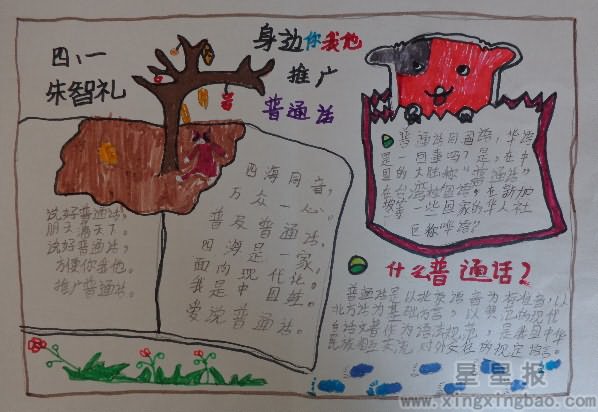 四、一
朱智礼
身边你我他
推广
普通话
说好普通话，
朋天满天下。
说好普通话，
方便你我他。
推广普通话。
四海同音，
万众一心。
普及普通话，
四海是一家，
面向现代化。
我是中国娃。
爱说普通话。
普通话同国语，华语
是一回事吗？是，在中
国的大陆称“普通话”
在台湾称国语，在新加
坡等一些国家的华人社
区称华语”
什么普通话？
普通话是以北京语音为标准音，以
北方话为基础方言，以典范的现代
白话文著作为语法规范，是我国中华
民族相互交流 对外交往的规定语言。
星星报
www.xingxingbao.com